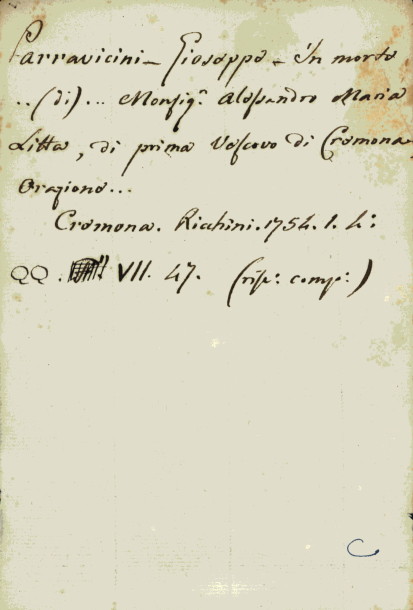 Parravicini - Gioseppe - In morte
..(di)... Monsigr. Alessandro Maria
Litta, di prima Vescovo di Cremona
Orazione...
Cremona. Richini. 1754. 1. 4:
QQ. VII. 47. (risp: comp:)